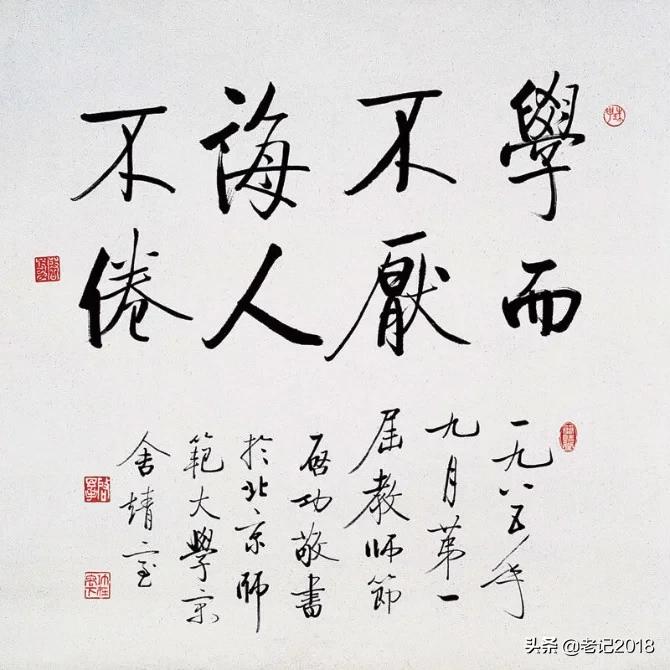 學而
不厭
誨人
不倦
一九八五年
九月第一
届教師節
啓功敬書
於北京師
範大學
舍靖室
头条 @老记2018